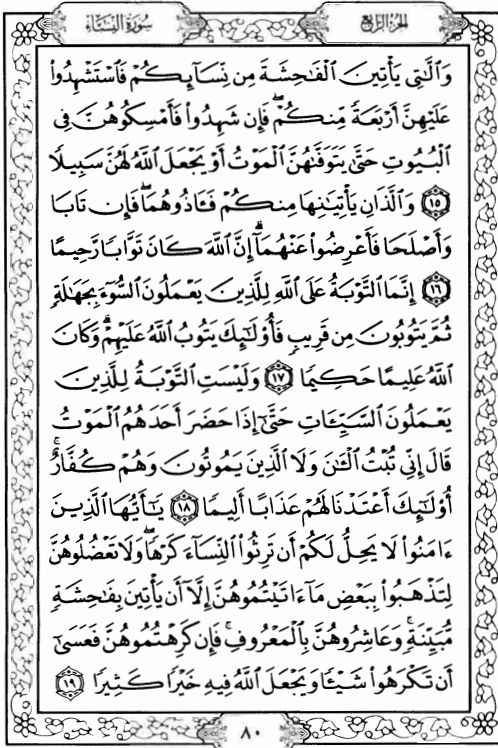 سُورَةُ النِّسَاءِ
الجُزْءُ الرَّابِعُ
وَالَّٰتِى يَأْتِينَ الْفَٰحِشَةَ مِن نِّسَآئِكُمْ فَاسْتَشْهِدُوا۟
عَلَيْهِنَّ أَرْبَعَةً مِّنكُمْ ۖ فَإِن شَهِدُوا۟ فَأَمْسِكُوهُنَّ فِى
الْبُيُوتِ حَتَّىٰ يَتَوَفَّىٰهُنَّ الْمَوْتُ أَوْ يَجْعَلَ اللَّهُ لَهُنَّ سَبِيلًا
١٥ وَالَّذَانِ يَأْتِيَٰنِهَا مِنكُمْ فَـَٔاذُوهُمَا ۖ فَإِن تَابَا
وَأَصْلَحَا فَأَعْرِضُوا۟ عَنْهُمَآ ۗ إِنَّ اللَّهَ كَانَ تَوَّابًا رَّحِيمًا
١٦ إِنَّمَا التَّوْبَةُ عَلَى اللَّهِ لِلَّذِينَ يَعْمَلُونَ السُّوٓءَ بِجَهَٰلَةٍ
ثُمَّ يَتُوبُونَ مِن قَرِيبٍ فَأُو۟لَٰٓئِكَ يَتُوبُ اللَّهُ عَلَيْهِمْ ۗ وَكَانَ
اللَّهُ عَلِيمًا حَكِيمًا ١٧ وَلَيْسَتِ التَّوْبَةُ لِلَّذِينَ
يَعْمَلُونَ السَّيِّـَٔاتِ حَتَّىٰٓ إِذَا حَضَرَ أَحَدَهُمُ الْمَوْتُ
قَالَ إِنِّى تُبْتُ الْـَٰٔنَ وَلَا الَّذِينَ يَمُوتُونَ وَهُمْ كُفَّارٌ ۚ
أُو۟لَٰٓئِكَ أَعْتَدْنَا لَهُمْ عَذَابًا أَلِيمًا ١٨ يَٰٓأَيُّهَا الَّذِينَ
ءَامَنُوا۟ لَا يَحِلُّ لَكُمْ أَن تَرِثُوا۟ النِّسَآءَ كَرْهًا ۖ وَلَا تَعْضُلُوهُنَّ
لِتَذْهَبُوا۟ بِبَعْضِ مَآ ءَاتَيْتُمُوهُنَّ إِلَّآ أَن يَأْتِينَ بِفَٰحِشَةٍ
مُّبَيِّنَةٍ ۚ وَعَاشِرُوهُنَّ بِالْمَعْرُوفِ ۚ فَإِن كَرِهْتُمُوهُنَّ فَعَسَىٰٓ
أَن تَكْرَهُوا۟ شَيْـًٔا وَيَجْعَلَ اللَّهُ فِيهِ خَيْرًا كَثِيرًا ١٩
٨٠